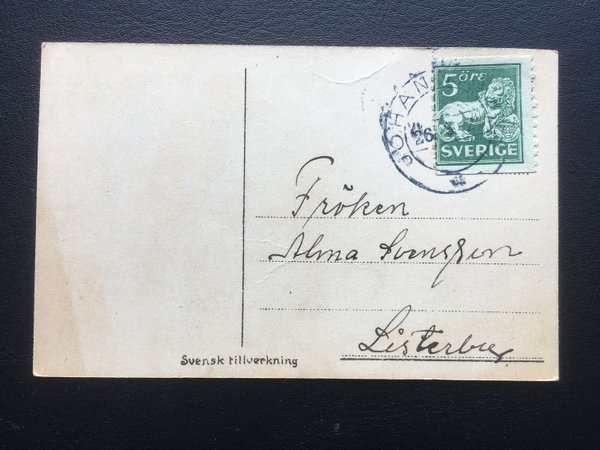 5 öre
SVERIGE
JOHAN
26
Fröken
Alma Svensson
Listerby
Svensk tillverkning